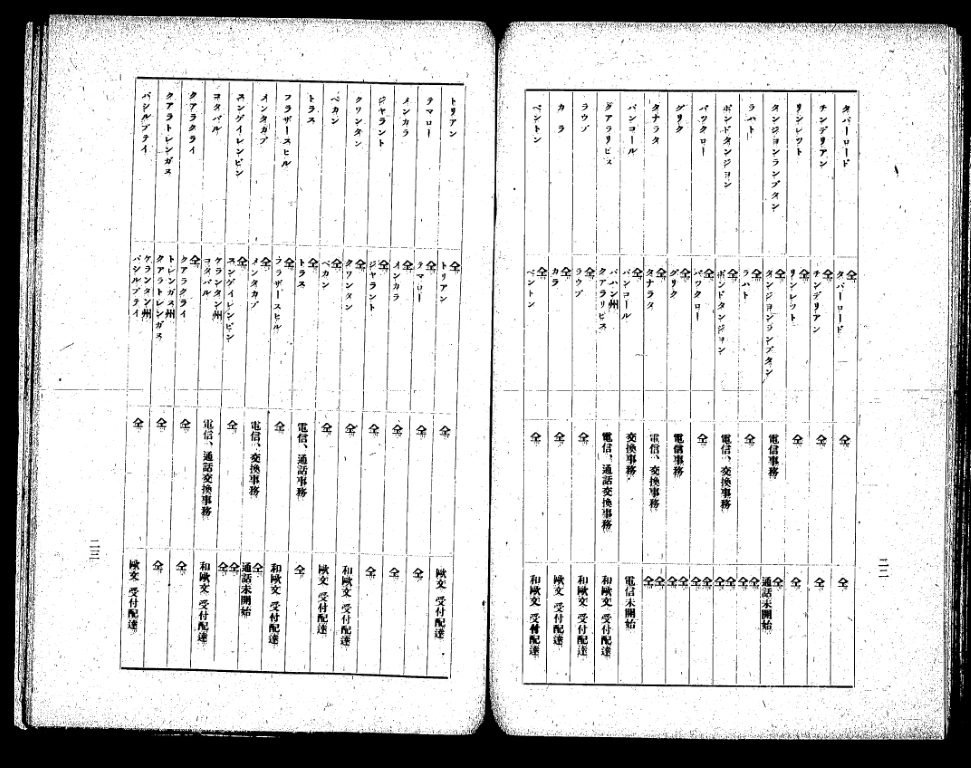 タパーロード 仝 タパーロード 仝 仝
チンデリアン 仝 チンデリアン 仝 仝
リンレット 仝 リンレット 仝 仝
タンジョンランブタン 仝 タンジョンランブタン 電信事務 仝 通話未開始
ラハト 仝 ラハト 仝 仝 仝
ポンドタンジョン 仝 ポンドタンジョン 電信、交換事務 仝 仝
パツクロー 仝 パツクロー 仝 仝 仝
グリク 仝 グリク 電信事務 仝 仝
タナラタ 仝 タナラタ 電信、交換事務 仝 仝
パンコール 仝 パンコール 交換事務 電信未開始
クアラリピス パハン州 クアラリピス 電信、通話交換事務 和歐文 受付配達
ラウブ 仝 ラウブ 仝 和歐文 受付配達
カラ 仝 カラ 仝 歐文 受付配達
ベントン 仝 ベントン 仝 和歐文 受付配達
二二
トリアン 仝 トリアン 仝 歐文 受付配達
テマロー 仝 テマロー 仝 仝
メンカラ 仝 メンカラ 仝 仝
ジャラント 仝 ジャラント 仝 仝
クワンタン 仝 クワンタン 仝 和歐文 受付配達
ペカン 仝 ペカン 仝 歐文 受付配達
トラス 仝 トラス 電信、通話事務 仝
フラザースヒル 仝 フラザースヒル 仝 和歐文 受付配達
メンタカブ 仝 メンタカブ 電信、交換事務 仝 通話未開始
スンゲイレンビン 仝 スンゲイレンビン 仝 仝 仝
コタバル ケランタン州 コタバル 電信、通話交換事務 和歐文 受付配達
クアラクライ 仝 クアラクライ 仝 仝
クアラトレンガヌ トレンガヌ州 クアラトレンガヌ 仝 仝
パシルプライ ケランタン州 パシルプライ 仝 歐文 受付配達
二三